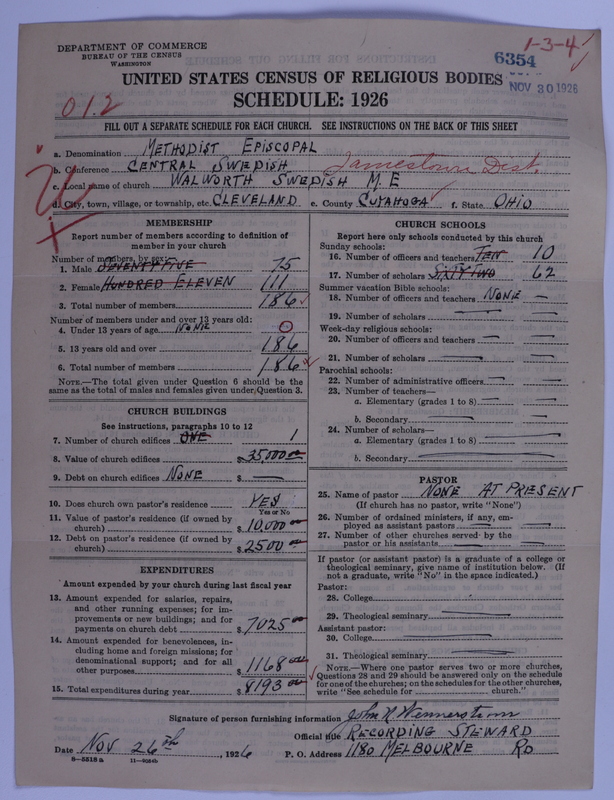 DEPARTMENT OF COMMERCE
BUREAU OF THE CENSUS
WASHINGTON
1-3-4
6354
NOV 30 1926
UNITED STATES CENSUS OF RELIGIOUS BODIES
SCHEDULE: 1926
012
FILL OUT A SEPARATE SCHEDULE FOR EACH CHURCH. SEE INSTRUCTIONS ON THE BACK OF THIS SHEET
a. Denomination METHODIST EPISCOPAL
b. Conference CENTRAL SWEDISH Jamestown Dist.
c. Local name of church WALWORTH SWEDISH M.E
d. City, town, village, or township, etc. CLEVELAND e. County CUYAHOGA f. State OHIO
MEMBERSHIP
Report number of members according to definition of member in your church
Number of members, by sex:
1. Male SEVENTY FIVE 75
2. Female HUNDRED ELEVEN 111
3. Total number of members 186
Number of members under and over 13 years old:
4. Under 13 years of age NONE 0
5. 13 years old and over 186
6. Total number of members 186
NOTE.—The total given under Question 6 should be the same as the total of males and females given under Question 3.
CHURCH BUILDINGS
See instructions, paragraphs 10 to 12
7. Number of church edifices ONE 1
8. Value of church edifices $ 35,000 00
9. Debt on church edifices NONE $ —
10. Does church own pastor's residence YES
Yes or No
11. Value of pastor's residence (if owned by church) $ 10,000 00
12. Debt on pastor's residence (if owned by church) $ 2500 00
EXPENDITURES
Amount expended by your church during last fiscal year
13. Amount expended for salaries, repairs, and other running expenses; for improvements or new buildings; and for payments on church debt $ 7025 00
14. Amount expended for benevolences, including home and foreign missions; for denominational support; and for all other purposes $ 1168 00
15. Total expenditures during year $ 8193 00
CHURCH SCHOOLS
Report here only schools conducted by this church
Sunday schools:
16. Number of officers and teachers TEN 10
17. Number of scholars SIXTY TWO 62
Summer vacation Bible schools:
18. Number of officers and teachers NONE —
19. Number of scholars — —
Week-day religious schools:
20. Number of officers and teachers — —
21. Number of scholars — —
Parochial schools:
22. Number of administrative officers — —
23. Number of teachers—
a. Elementary (grades 1 to 8) — —
b. Secondary — —
24. Number of scholars—
a. Elementary (grades 1 to 8) —
b. Secondary —
PASTOR
25. Name of pastor NONE AT PRESENT
(If church has no pastor, write "None")
26. Number of ordained ministers, if any, employed as assistant pastors —
27. Number of other churches served by the pastor or his assistants — —
If pastor (or assistant pastor) is a graduate of a college or theological seminary, give name of institution below. (If not a graduate, write "No" in the space indicated.)
Pastor:
28. College —
29. Theological seminary —
Assistant pastor:
30. College —
31. Theological seminary —
NOTE.—Where one pastor serves two or more churches, Questions 28 and 29 should be answered only on the schedule for one of the churches; on the schedules for the other churches, write "See schedule for church."
Signature of person furnishing information John N Wennerstrom
Official title RECORDING STEWARD
Date Nov 26th, 1926 P. O. Address 1180 MELBOURNE RD
8—5518a 11—9034b